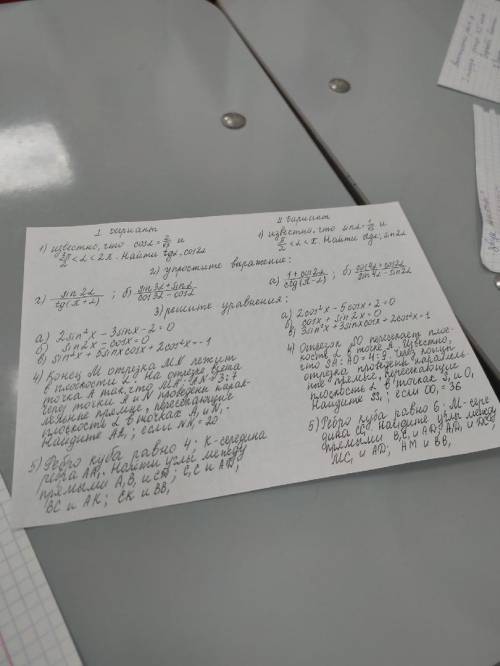 I вариант
1) известно, что cosα = 2/√3 и
3π/2 < α < 2π. Найти tgα, cos2α
II вариант
1) известно, что sinα = 1/√3 и
π/2 < α < π. Найти ctgα, sin2α
2) упростите выражение:
а) sin2α / tg(π+α) ; б) sin3α + sinα / cos3α − cosα
а) 1+cos2α / ctg(π−α) ; б) cos4α + cos2α / sin4α − sin2α
3) решите уравнения:
а) 2sin²x − 3sinx − 2 = 0
б) sin2x − cosx = 0
в) sin²x + 6sinxcosx + 2cos²x = −1
а) 2cos²x − 5cosx + 2 = 0
б) cosx + sin2x = 0
в) 3sin²x + 3sinxcosx + 2cos²x = 1
4) Конец M отрезка MN лежит
в плоскости α. На отрезке взята
точка A так, что MA : AN = 3 : 7
Через точки A и N проведены парал-
лельные прямые, пересекающие
плоскость α в точках A₁ и N₁.
Найдите AA₁, если NN₁ = 20
4) Отрезок SO пересекает плос-
кость α в точке A. Известно,
что SA : AO = 4 : 9. Через концы
отрезка проведены параллель-
ные прямые, пересекающие
плоскость α в точках S₁ и O₁
Найдите SS₁, если OO₁ = 36
5) Ребро куба равно 4; K - середина
ребра AA₁. Найти углы между
прямыми A₁B₁ и
C₁C и AD;
BC и AK; CK и BB₁
5) Ребро куба равно 6; M - сере-
дина
найдите углы между
прямыми B₁C₁ и
MC₁ и AD₁ AM и BB₁